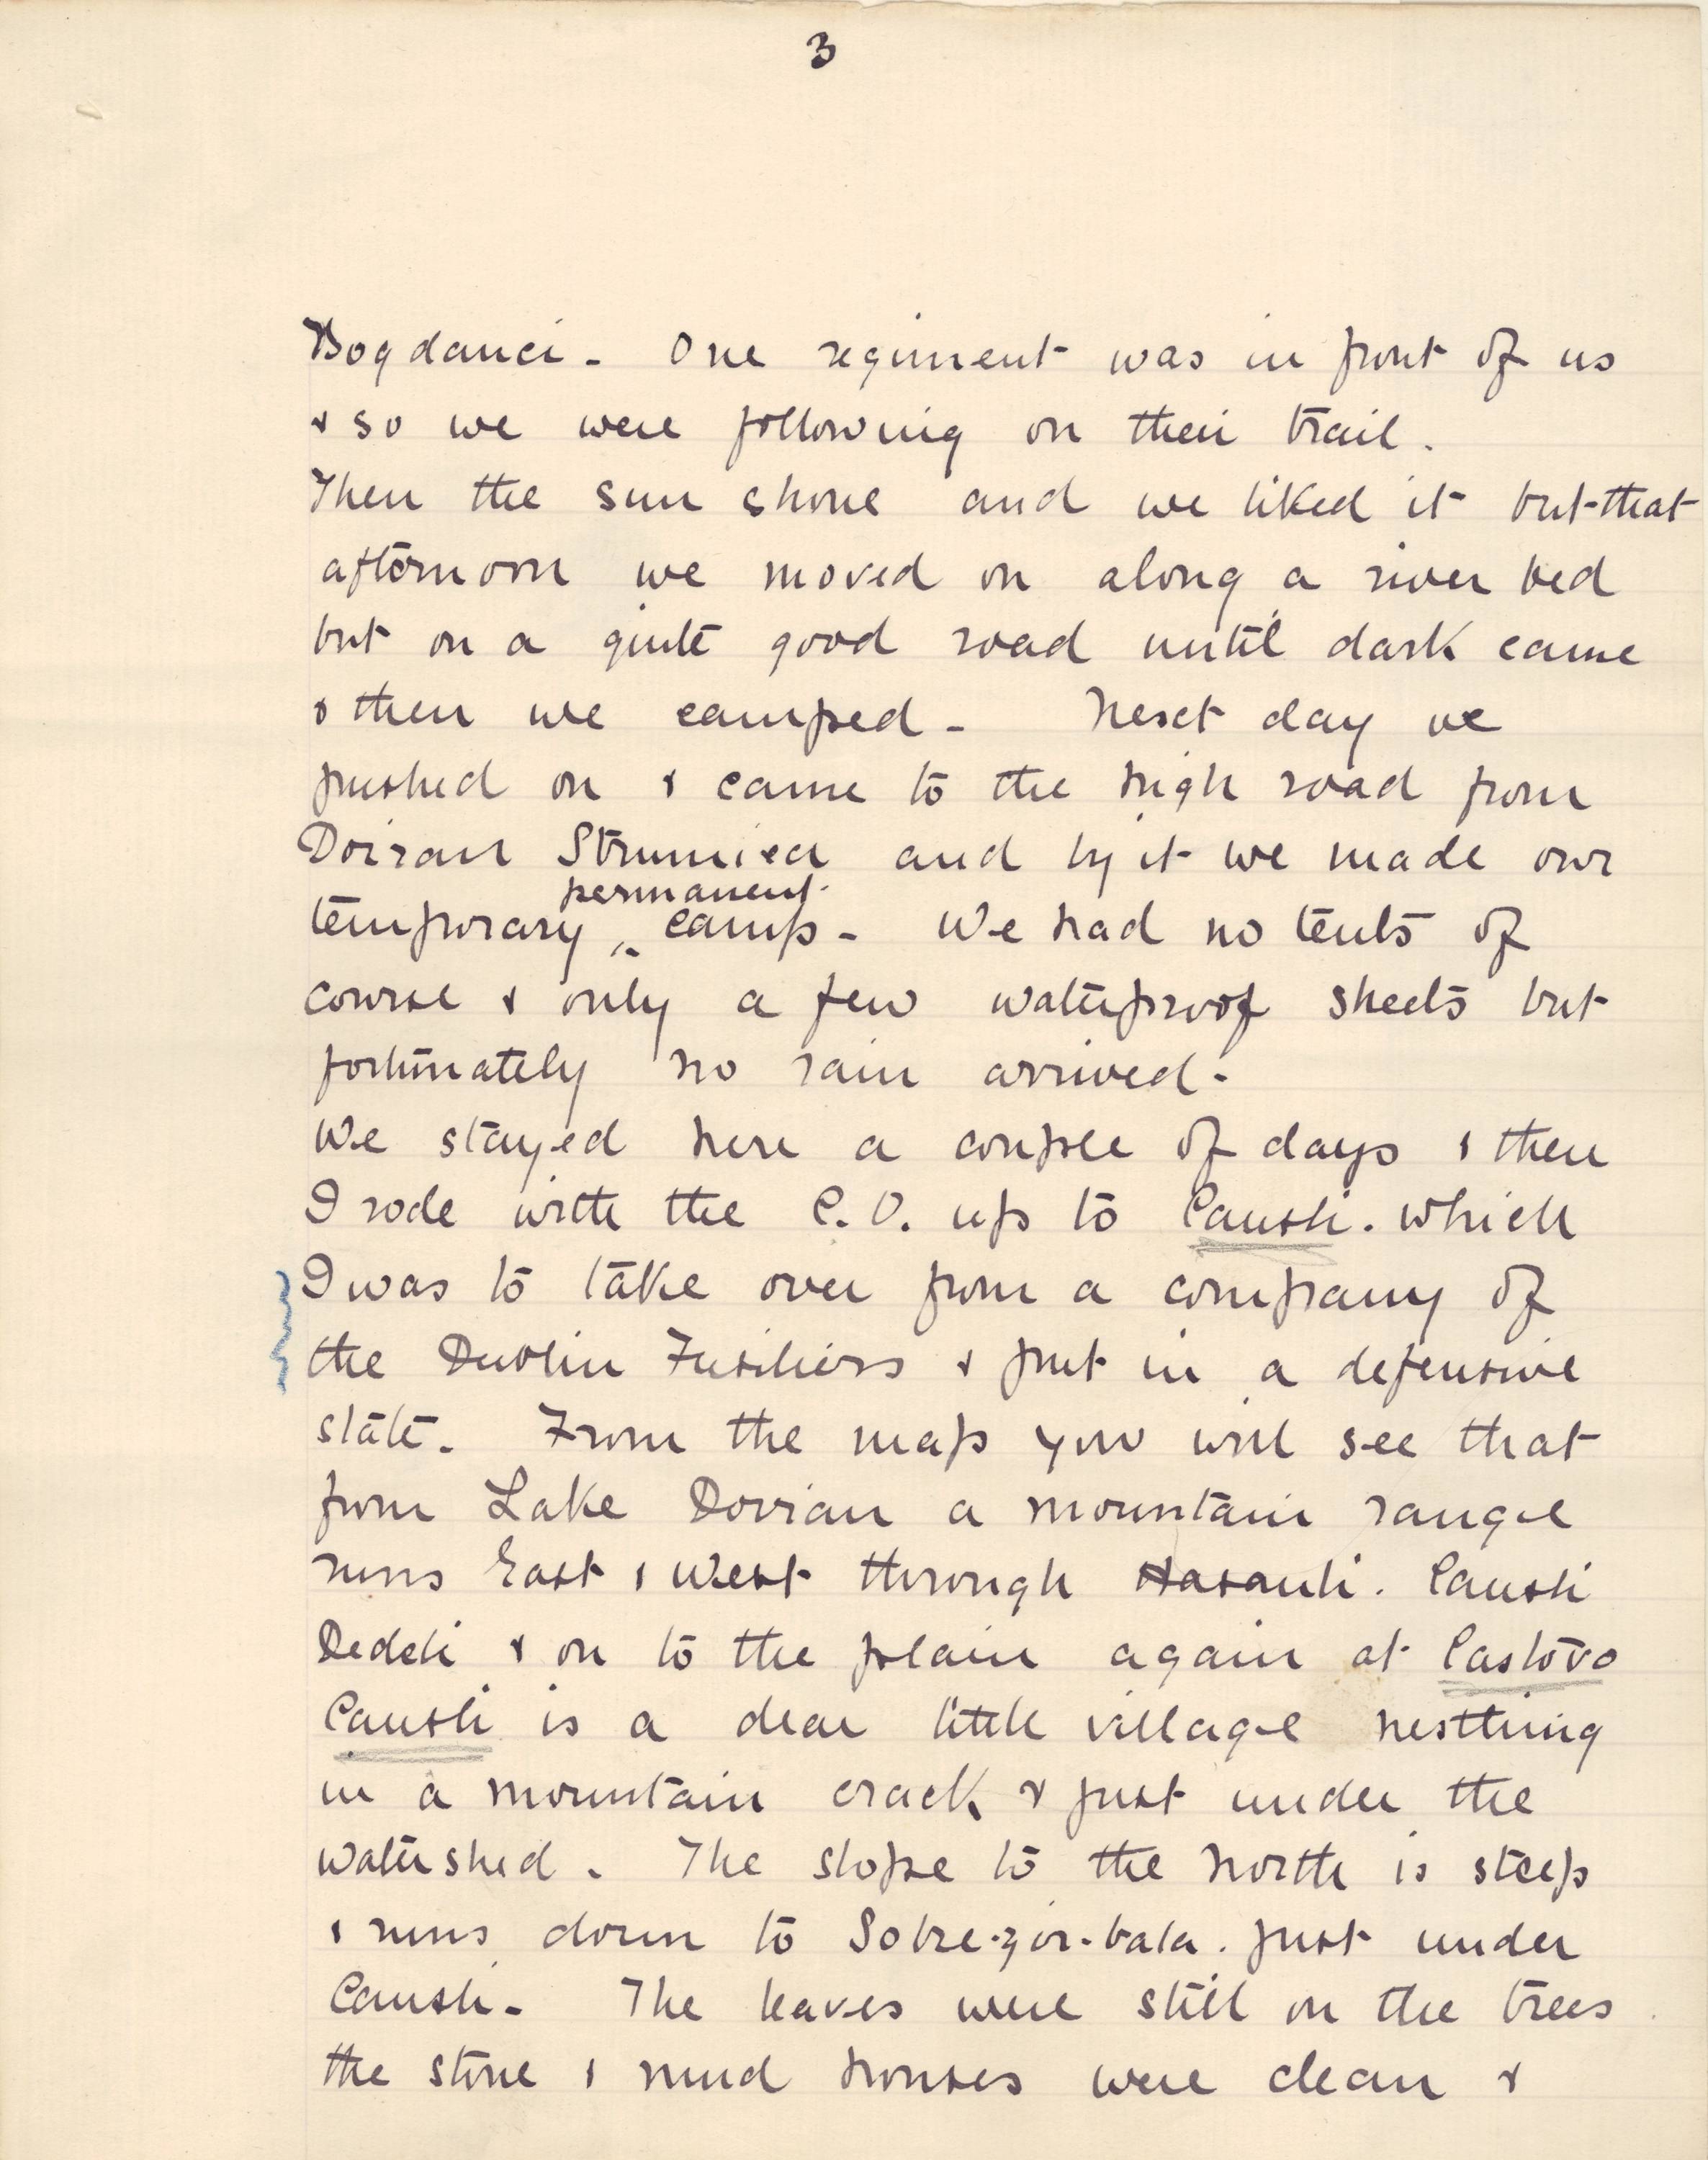 3
Bogdanci - One regiment was in front of us
& so we were following on their trail.
Then the sun shone and we liked it but that
afternoon we moved on along a river bed
but on a quite good road until dark came
& then we camped - Next day we
pushed on & came to the high road from
Doiran Strumica and by it we made our
permanent
temporary ^ camp - We had no tents of
course & only a few waterproof sheets but
fortunately no rain arrived -
We stayed here a couple of days & then
I rode with the C.O. up to Causli. which
I was to take over from a company of
the Dublin Fusiliers & put in a defensive
state. From the map you will see that
from Lake Dorian a mountain range
runs East & West through Hasanli. Causli
Dedeli & on to the plain again at Castovo
Causli is a dear little village nestling
in a mountain crack & just under the
watershed. The slope to the north is steep
& runs down to just under
Causli - The leaves were still on the trees
the stone & mud houses were clean &